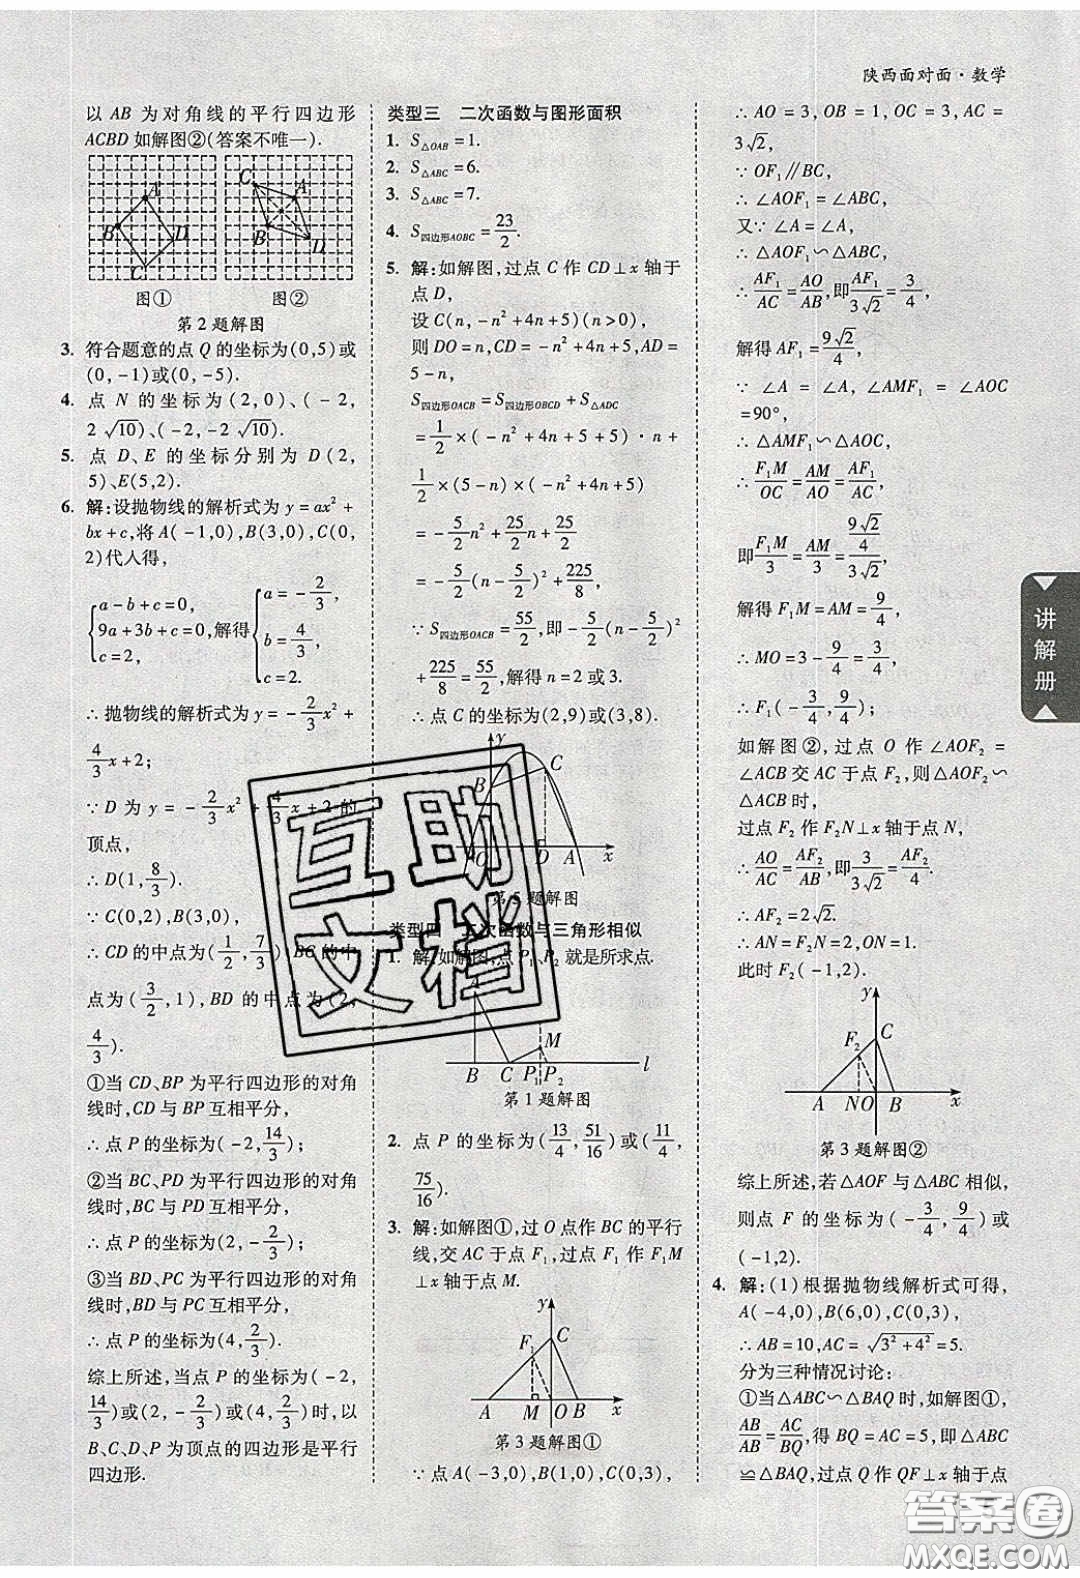 陕西面对面·数学
以 AB 为对角线的平行四边形
ACBD 如解图②(答案不唯一).
A
B
D
C
图①
C
A
B
D
图②
第2题解图
3. 符合题意的点 Q 的坐标为(0,5)或
(0,-1)或(0,-5).
4. 点 N 的坐标为(2,0)、(-2,
2√10)、(-2,-2√10).
5. 点 D、E 的坐标分别为 D(2,
5)、E(5,2).
6. 解:设抛物线的解析式为 y=ax²+
bx+c,将 A(-1,0),B(3,0),C(0,
2)代入得,
{a-b+c=0, 9a+3b+c=0, c=2, 解得 {a=-2/3, b=4/3, c=2.
∴抛物线的解析式为 y=-2/3x²+
4/3x+2;
∵D 为 y=-2/3x²+4/3x+2 的
顶点,
∴D(1,8/3).
∵C(0,2),B(3,0),
∴CD 的中点为(1/2,7/3),BC 的中
点为(3/2,1),BD 的中点为(2,
4/3).
①当 CD、BP 为平行四边形的对角
线时,CD 与 BP 互相平分,
∴点 P 的坐标为(-2,14/3);
②当 BC、PD 为平行四边形的对角
线时,BC 与 PD 互相平分,
∴点 P 的坐标为(2,-2/3);
③当 BD、PC 为平行四边形的对角
线时,BD 与 PC 互相平分,
∴点 P 的坐标为(4,2/3).
综上所述,当点 P 的坐标为(-2,
14/3)或(2,-2/3)或(4,2/3)时,以
B、C、D、P 为顶点的四边形是平行
四边形.
类型三 二次函数与图形面积
1. S△OAB=1.
2. S△ABC=6.
3. S△ABC=7.
4. S四边形AOBC=23/2.
5. 解:如解图,过点 C 作 CD⊥x 轴于
点 D,
设 C(n,-n²+4n+5)(n>0),
则 DO=n,CD=-n²+4n+5,AD=
5-n,
S四边形OACB=S四边形OBCD+S△ADC
=1/2×(-n²+4n+5+5)·n+
1/2×(5-n)×(-n²+4n+5)
=-5/2n²+25/2n+25/2
=-5/2(n-5/2)²+225/8,
∵S四边形OACB=55/2,即-5/2(n-5/2)²
+225/8=55/2,解得 n=2 或 3.
∴点 C 的坐标为(2,9)或(3,8).
y
B
C
O
D
A
x
第5题解图
类型四 二次函数与三角形相似
1. 解:如解图,点 P₁、P₂ 就是所求点.
A
M
B
C
P₁
P₂
l
第1题解图
2. 点 P 的坐标为(13/4,51/16)或(11/4,
75/16).
3. 解:如解图①,过 O 点作 BC 的平行
线,交 AC 于点 F₁,过点 F₁ 作 F₁M
⊥x 轴于点 M.
y
F₁
C
A
M
O
B
x
第3题解图①
∵点 A(-3,0),B(1,0),C(0,3),
∴AO=3,OB=1,OC=3,AC=
3√2,
∵OF₁∥BC,
∴∠AOF₁=∠ABC,
又∵∠A=∠A,
∴△AOF₁∽△ABC,
∴AF₁/AC=AO/AB,即AF₁/3√2=3/4,
解得 AF₁=9√2/4,
∵∠A=∠A,∠AMF₁=∠AOC
=90°,
∴△AMF₁∽△AOC,
∴F₁M/OC=AM/AO=AF₁/AC,
即F₁M/3=AM/3=(9√2/4)/3√2,
解得 F₁M=AM=9/4,
∴MO=3-9/4=3/4,
∴F₁(-3/4,9/4);
如解图②,过点 O 作∠AOF₂=
∠ACB 交 AC 于点 F₂,则△AOF₂∽
△ACB 时,
过点 F₂ 作 F₂N⊥x 轴于点 N,
∴AO/AC=AF₂/AB,即3/3√2=AF₂/4,
∴AF₂=2√2.
∴AN=F₂N=2,ON=1.
此时 F₂(-1,2).
y
F₂
C
A
N
O
B
x
第3题解图②
综上所述,若△AOF 与△ABC 相似,
则点 F 的坐标为(-3/4,9/4)或
(-1,2).
4. 解:(1)根据抛物线解析式可得,
A(-4,0),B(6,0),C(0,3),
∴AB=10,AC=√(3²+4²)=5.
分为三种情况讨论:
①当△ABC∽△BAQ 时,如解图①,
AB/AB=AC/BQ,得 BQ=AC=5,即△ABC
≌△BAQ,过点 Q 作 QF⊥x 轴于点
讲解册
互助文档
答案圈
MXQE.COM